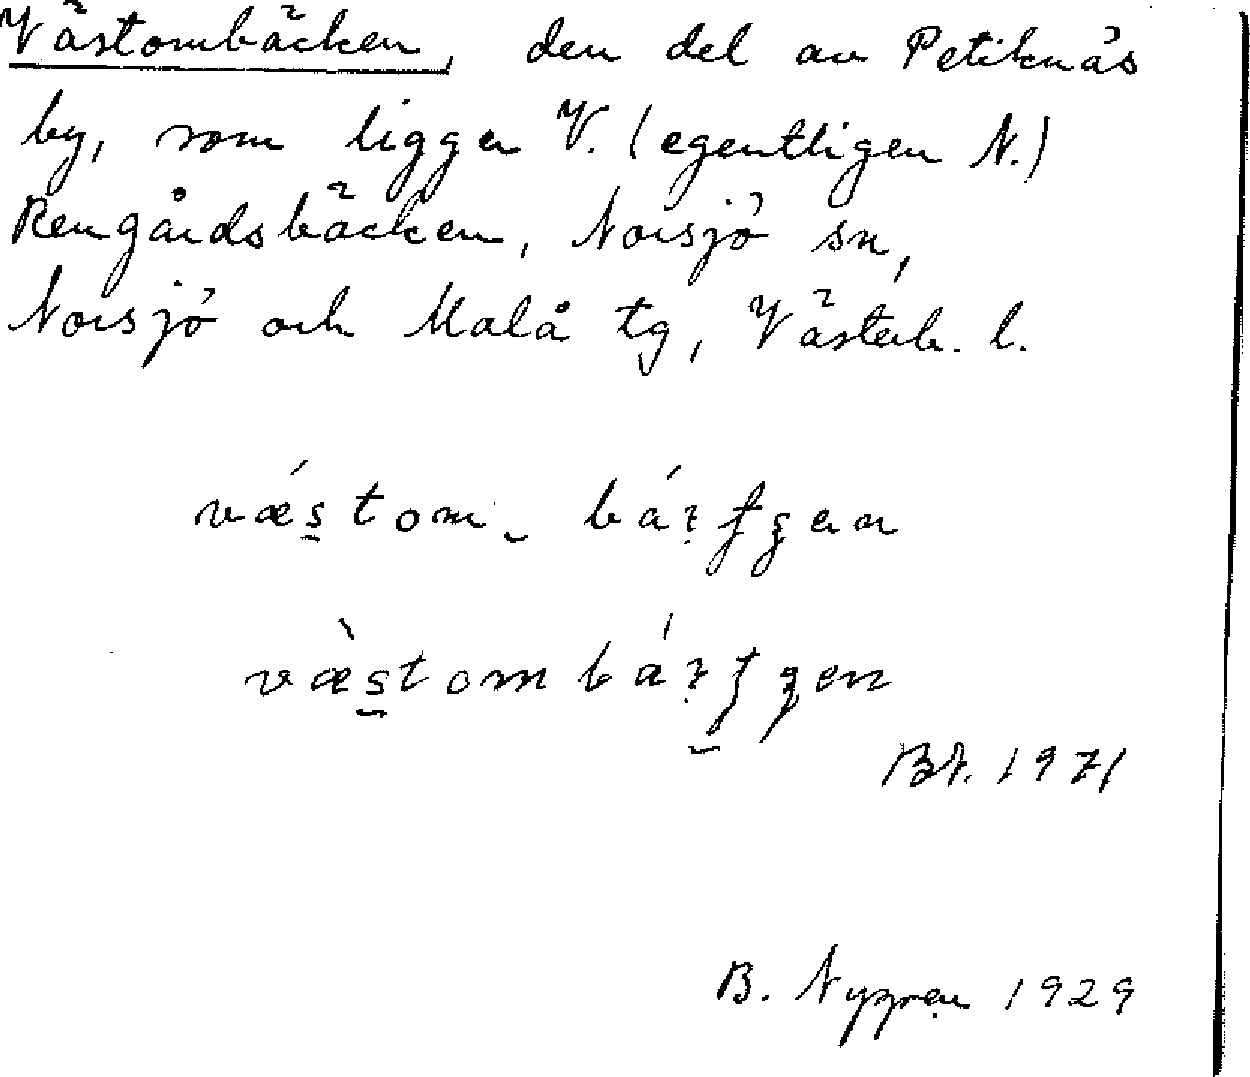 Västombäcken, den del av Petiknäs
by, som ligger V. (egentligen N.)
Rengårdsbäcken, Norsjö sn,
Norsjö och Malå tg, Västerb. l.
Bt. 1971
B. Nygren 1929